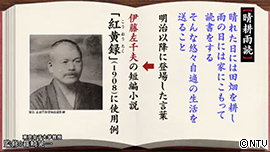 【晴耕雨読】
晴れた日には田畑を耕し
雨の日には家にこもって
読書をする
そんな悠々自適の生活を
送ること
明治以降に登場した言葉
伊藤左千夫の短編小説
「紅黄録」(1908)に使用例
©NTV